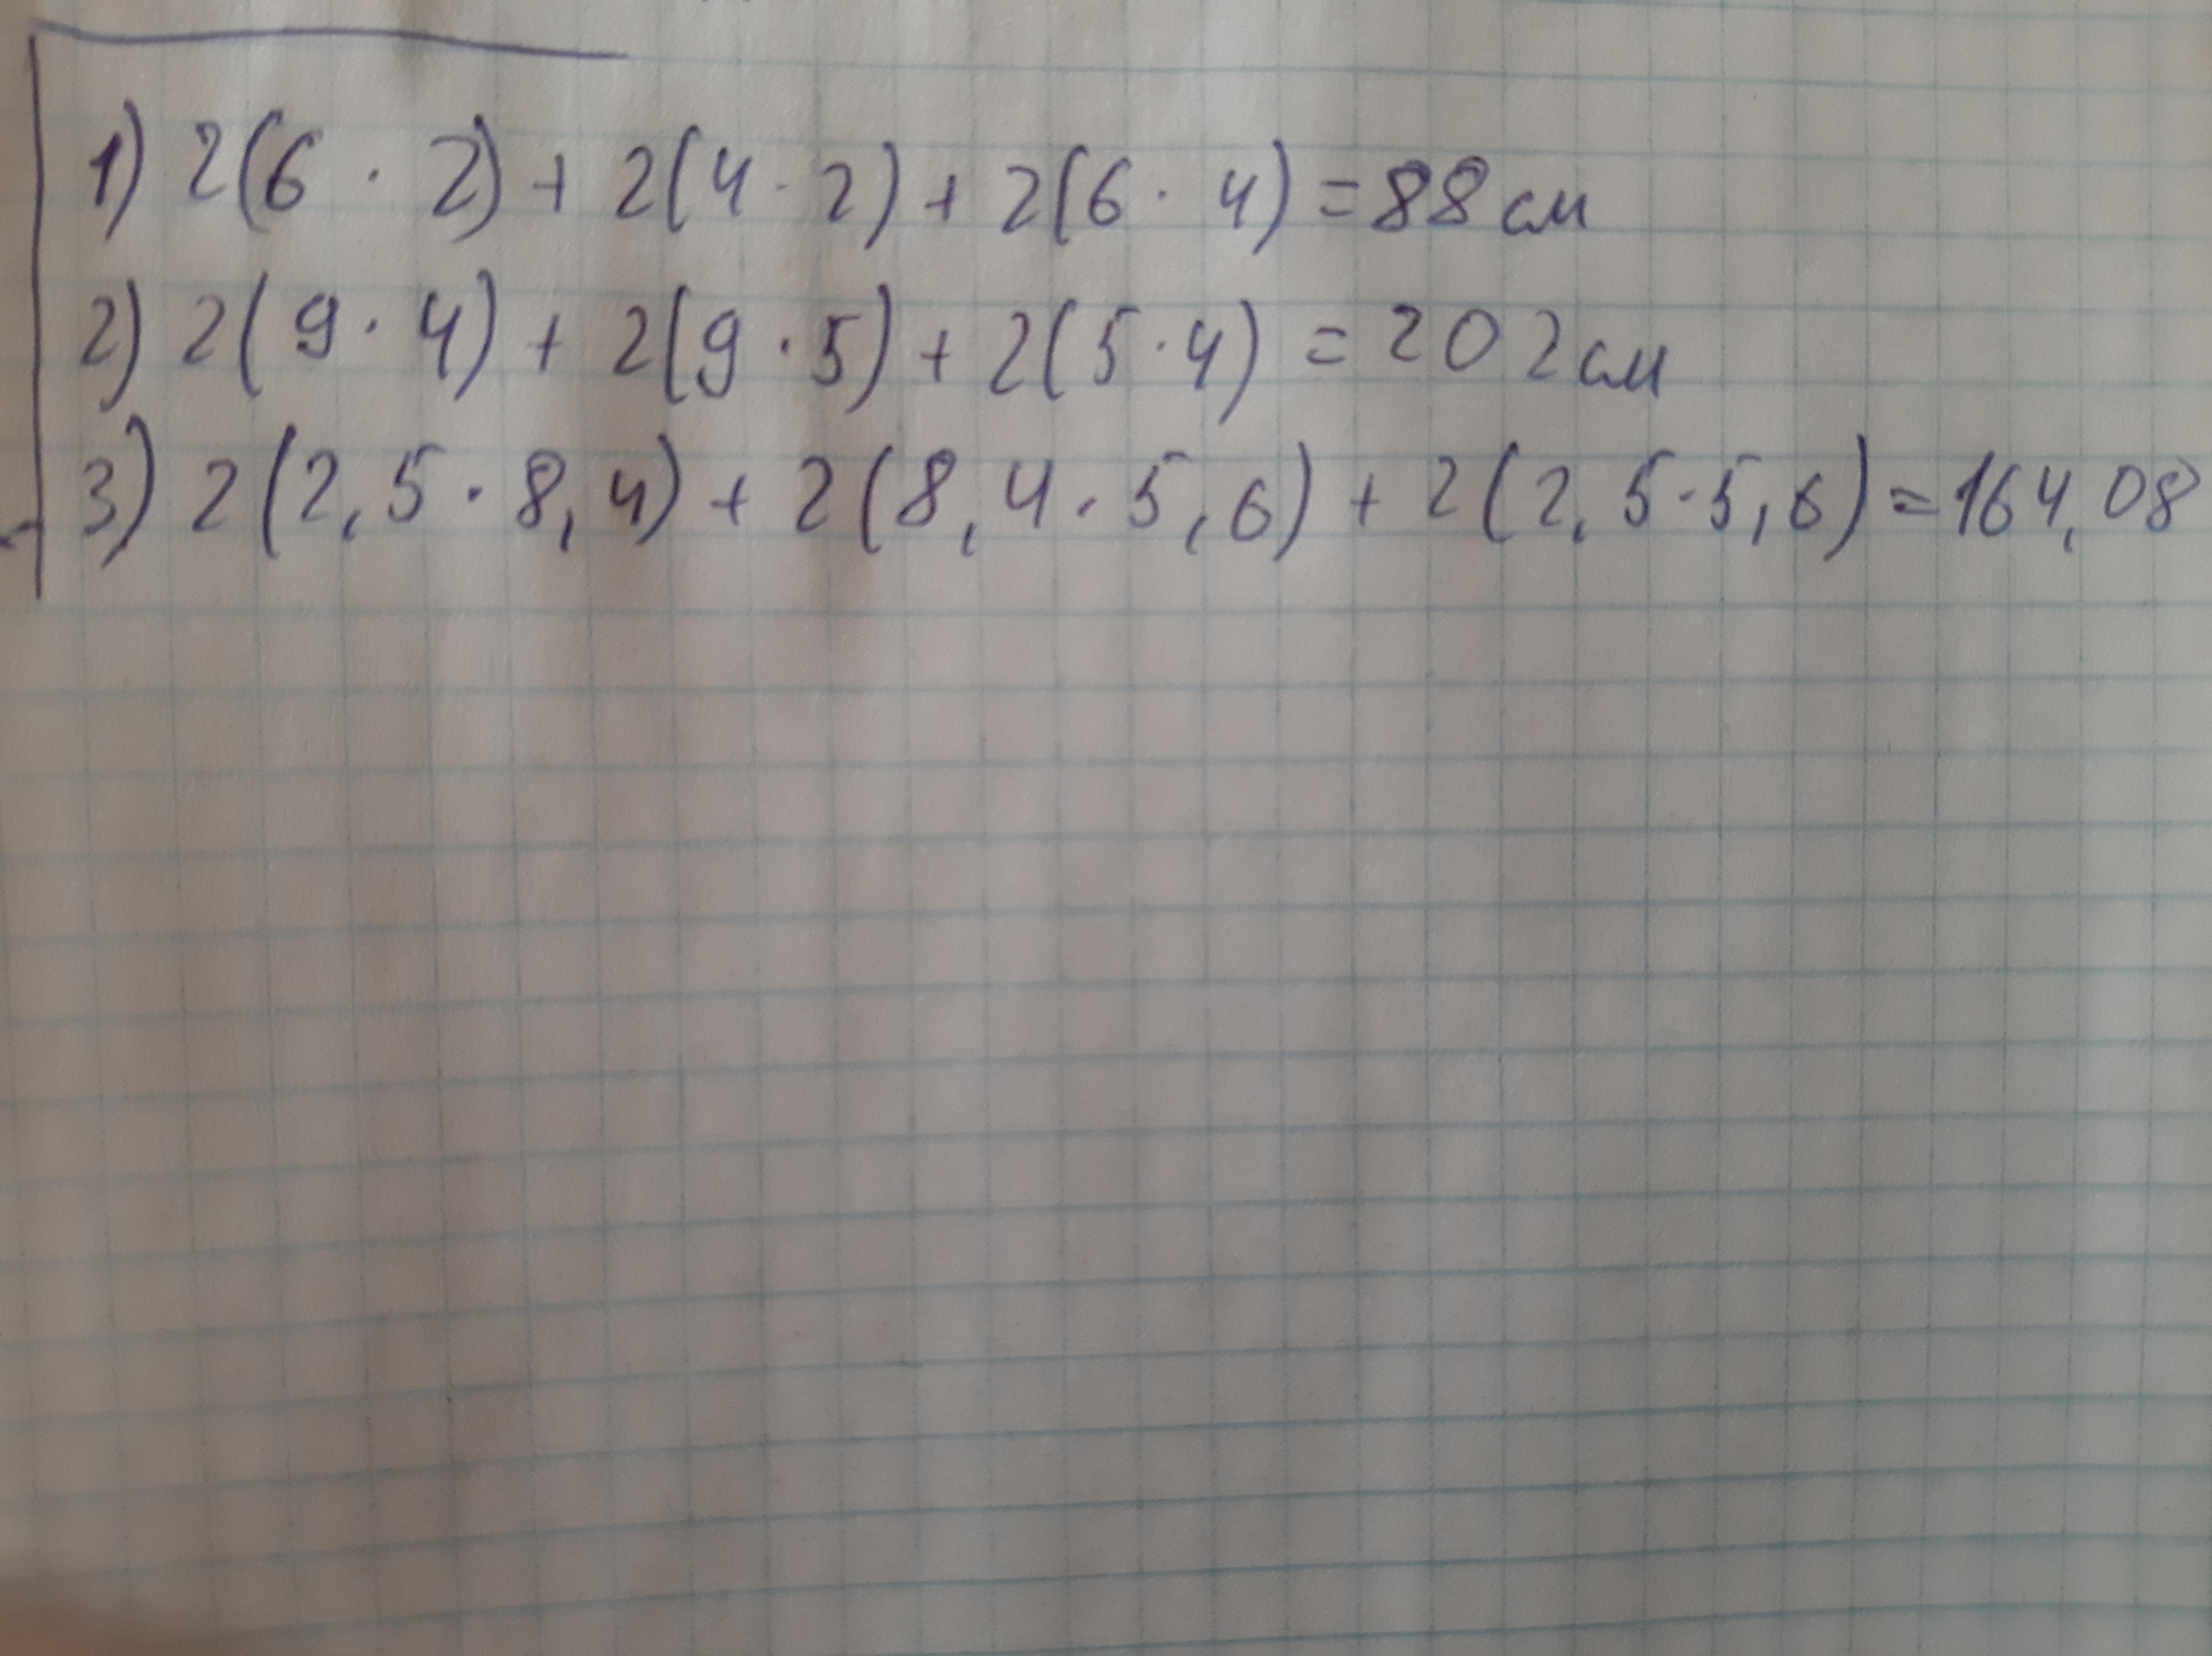 1) 2(6 · 2) + 2(4 · 2) + 2(6 · 4) = 88 см
2) 2(9 · 4) + 2(9 · 5) + 2(5 · 4) = 202 см
3) 2(2,5 · 8,4) + 2(8,4 · 5,6) + 2(2,5 · 5,6) = 164,08